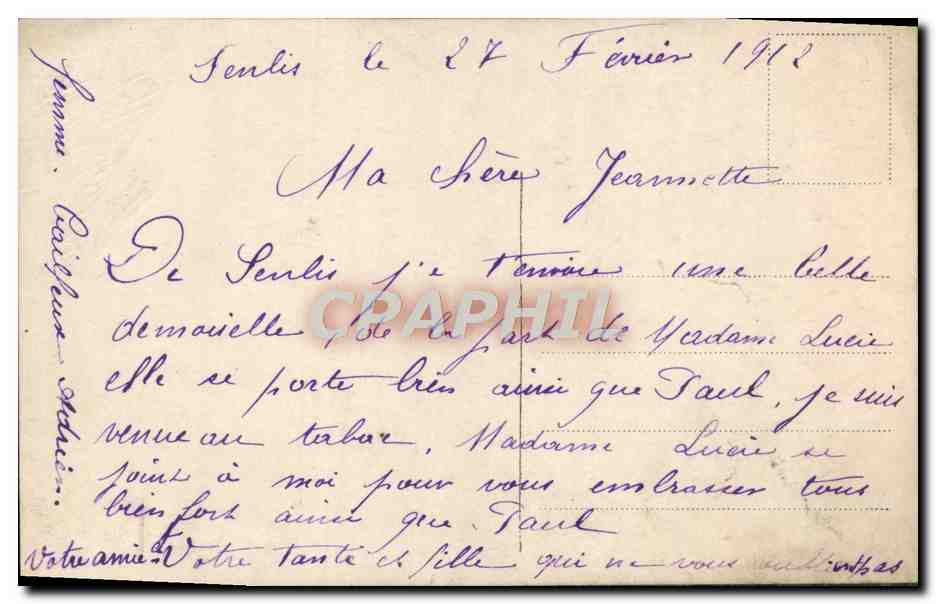 Senlis le 27 Février 1912
Ma chère Jeannette
De Senlis je t'envoie une belle
demoiselle de la part de Madame Lucie
elle se porte bien ainsi que Paul, je suis
venue au tabac, Madame Lucie se
joint à moi pour vous embrasser tous
bien fort ainsi que Paul
votre amie Votre tante et fille qui ne vous oublient pas
femme. Adrien.
CRAPHIL